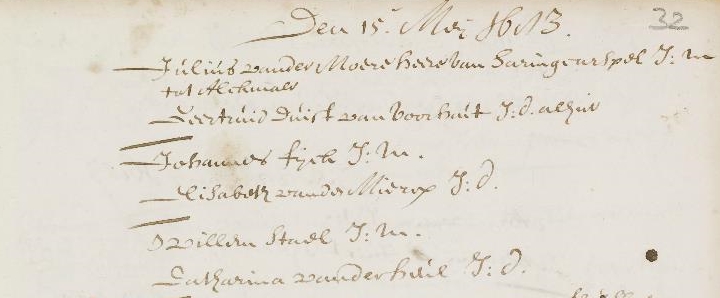 32
Den 15. Meij 1673.
Julius vander Moere heere van Haringcarspel J: m
tot Alckmaer
Geertruid Duist van Voorhout J: d. alhier
Johannes Eyck J: m.
Elisabeth vander Mierop J: d.
Willem Stael J: m:
Catharina vander heul J: d.